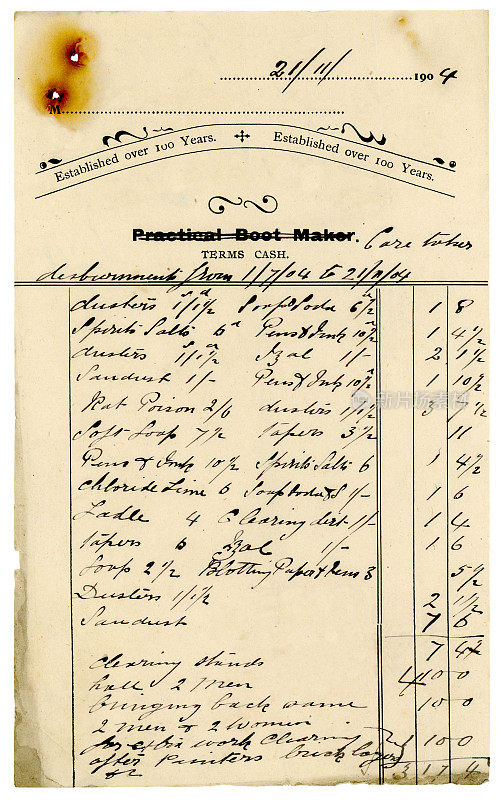 21/11/ 1904
M
Established over 100 Years. Established over 100 Years.
Practical Boot Maker. Care taker
TERMS CASH.
disbursment from 1/7/04 to 21/9/04
dusters 1/1½ Soap & Soda 6½ 1 8
Spirits Salts 6d Pens & Ink 10½ 1 4½
dusters 1/1½ Izal 1/- 2 1½
Sandust 1/- Pens & Ink 10½ 1 10½
Rat Poison 2/6 dusters 1/1½ 3 7½
Soft Soap 7½ Tapers 3½ 11
Pens & Ink 10½ Spirits Salts 6 1 4½
Chloride Lime 6 Soap Soda &S 1/- 1 6
Ladle 4 Clearing dirt 1/- 1 4
Tapers 6 Izal 1/- 1 6
Soap 2½ Blotting Paper & Pens 3 5½
Dusters 1/1½ 2 1½
Sandust 7 6
7 4½
Clearing stands
hall 2 men 4 0 0
bringing back same 10 0
2 men & 2 women
for extra work clearing 1 10 0
after Painters brick layers
3 17 4